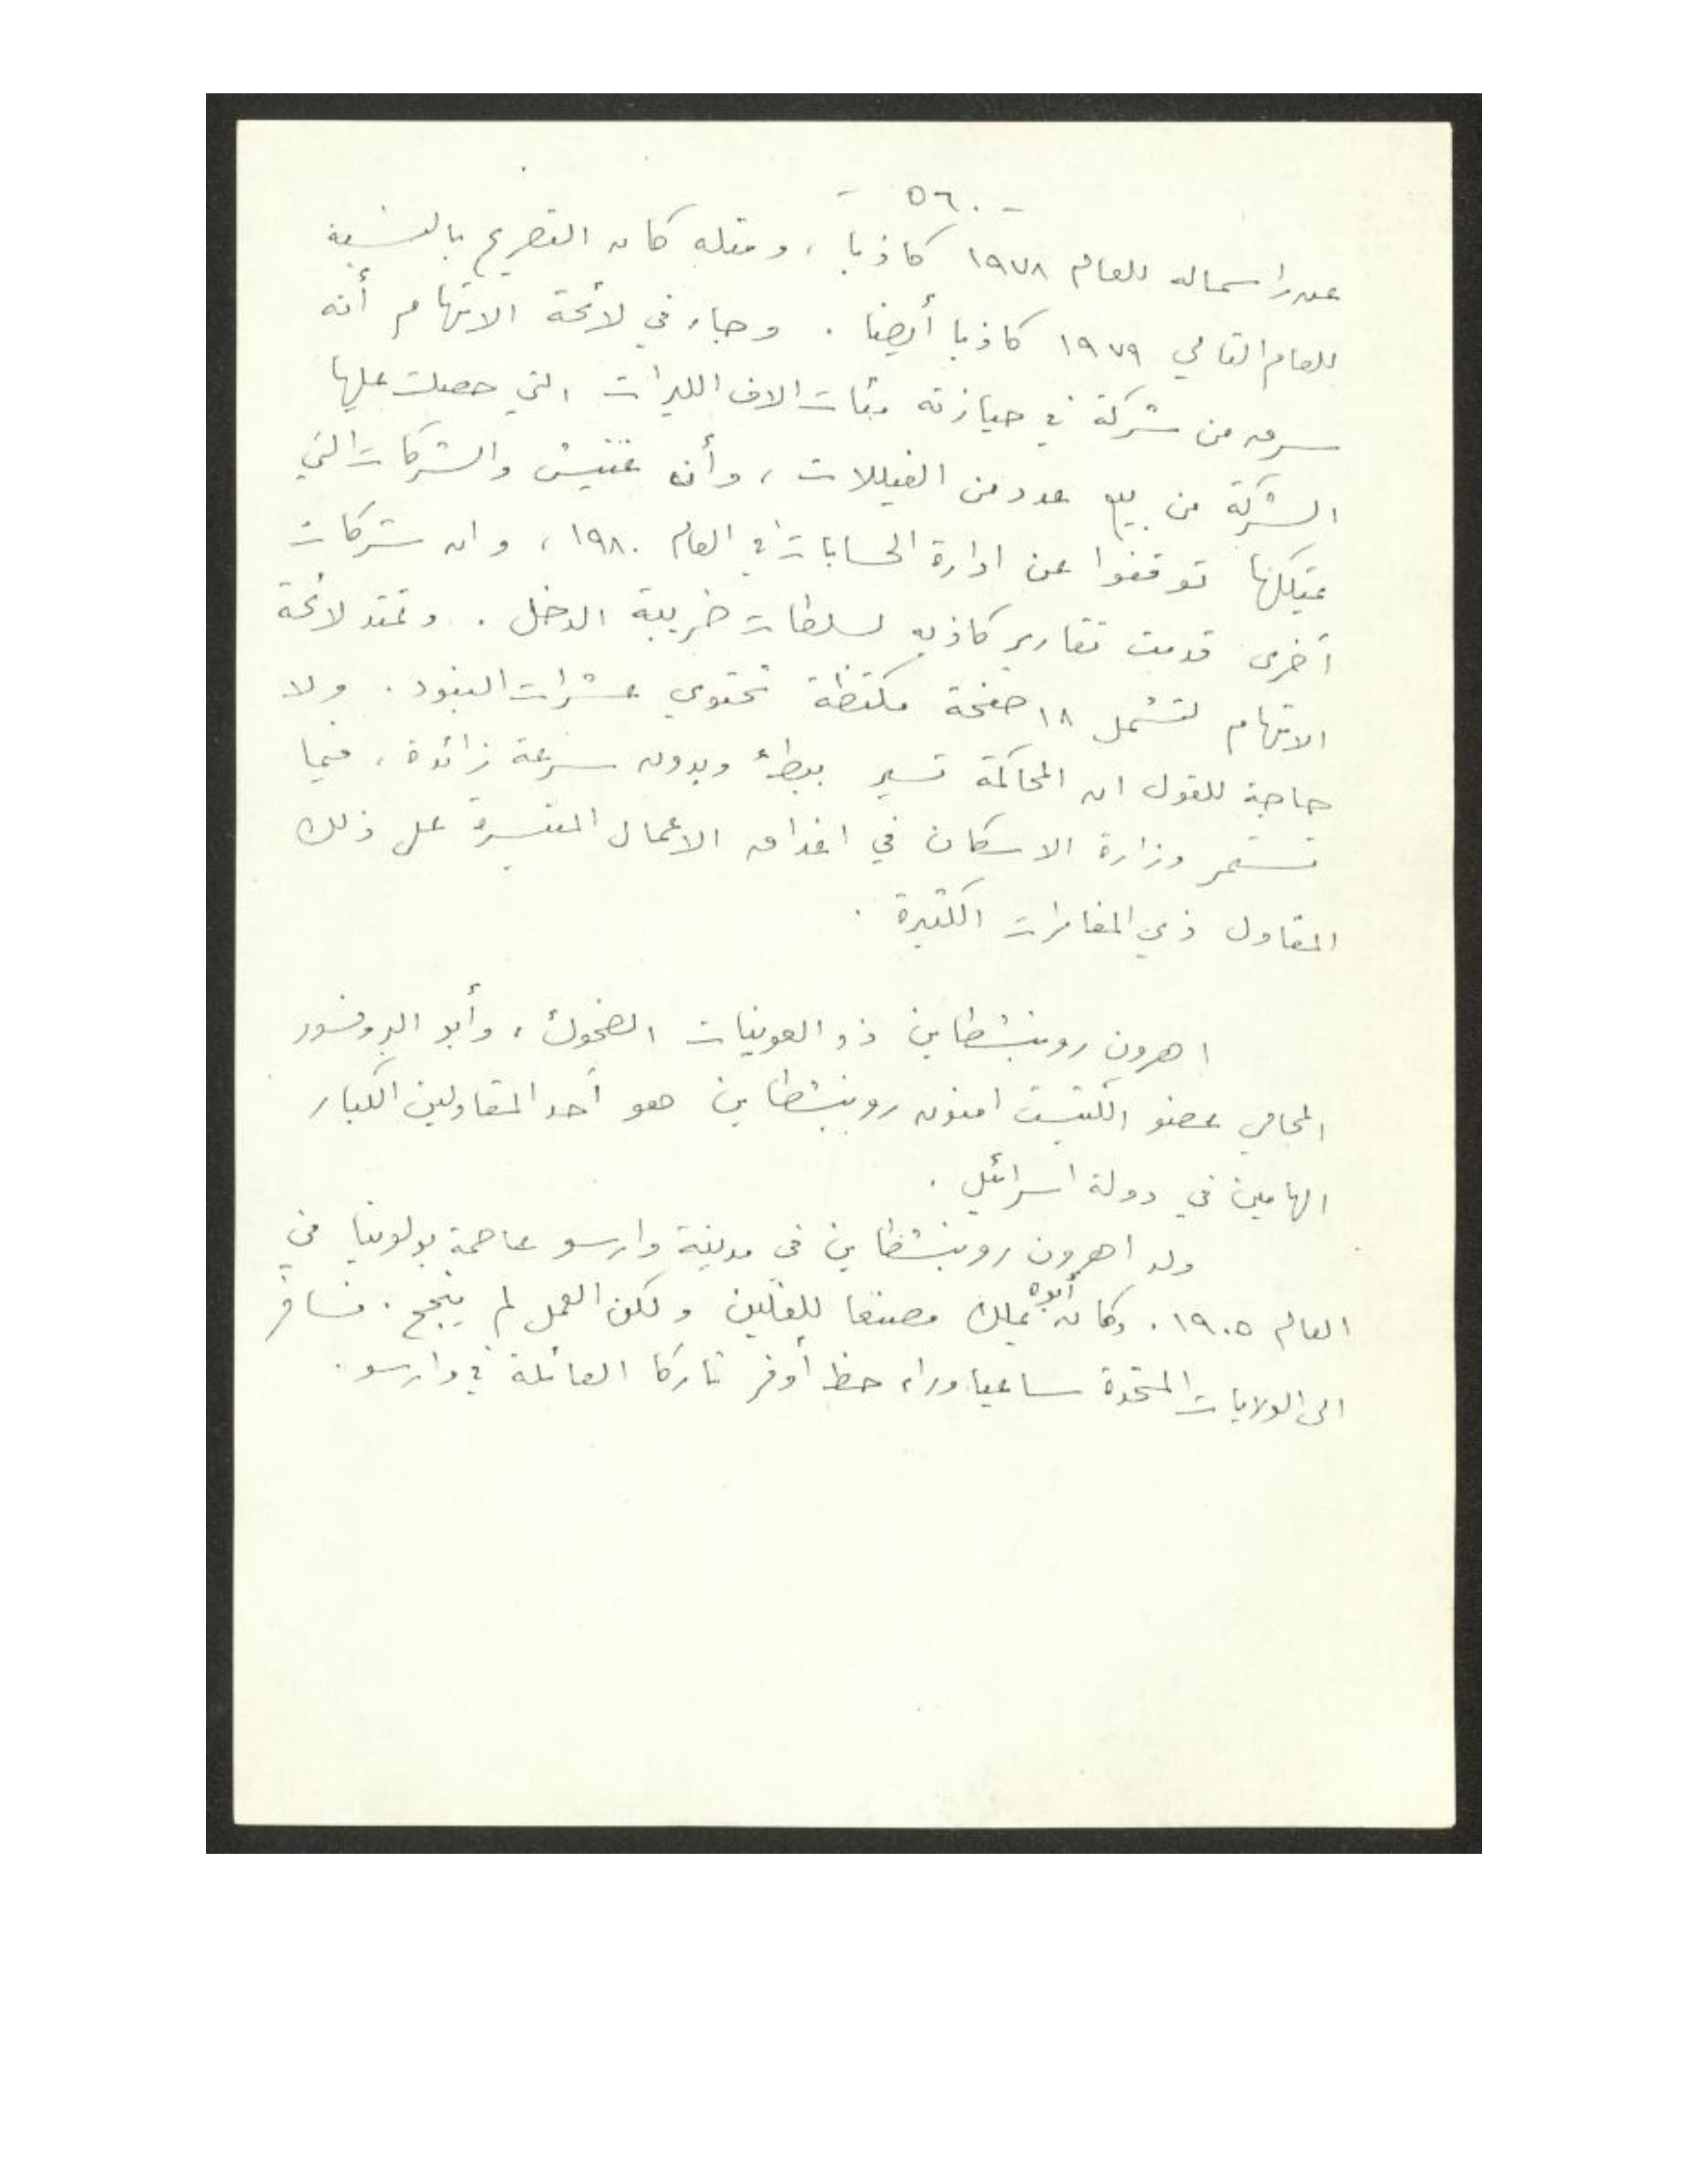 - ٥٦٠ -
عن راسماله للعام ١٩٧٨ كاذبا ، ومثله كان التصريح بالنسبة
للعام التالي ١٩٧٩ كاذبا أيضا . وجاء في لائحة الاتهام أنه
سرق من شركة في حيازته مئات الاف الليرات التي حصلت عليها
الشركة من بيع عدد من الفيللات ، وأن والشركات التي
يمتلكها توقفوا عن ادارة الحسابات في العام ١٩٨٠ ، وان شركات
أخرى قدمت تقارير كاذبه لسلطات ضريبة الدخل . وتمتد لائحة
الاتهام لتشمل ١٨ صفحة مكتظة تحتوي عشرات البنود . ولا
حاجة للقول ان المحاكمة تسير ببطئ وبدون سرعة زائدة ، فيما
تستمر وزارة الاسكان في اغداق الاعمال على ذلك
المقاول ذي المغامرات الكثيرة .
اهرون روبنشطاين ذو العوينات الضحوك ، وأبو البروفسور
المحامي عضو الكنيست امنون روبنشطاين هو أحد المقاولين الكبار
الهامين في دولة اسرائيل .
ولد اهرون روبنشطاين في مدينة وارسو عاصمة بولونيا في
العام ١٩٠٥ . وكان أبوه يملك مصنعا للفلين ولكن العمل لم ينجح . فسافر
الى الولايات المتحدة ساعيا وراء حظ أوفر تاركا العائلة في وارسو .